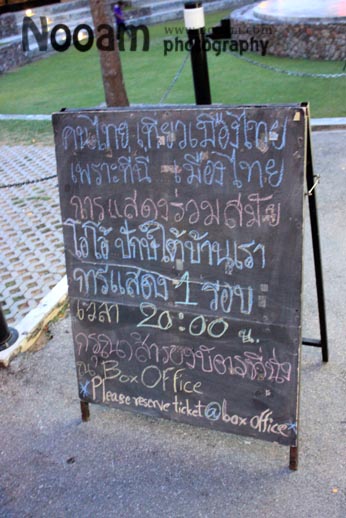 Nooam
photography
คนไทย เที่ยวเมืองไทย
เพราะที่นี่ เมืองไทย
การแสดงร่วมสมัย
โอ้โอ้ ปักษ์ใต้บ้านเรา
การแสดง 1 รอบ
เวลา 20:00 น.
กรุณาสำรองบัตรที่นั่ง
Box Office
*please reserve ticket@box office*